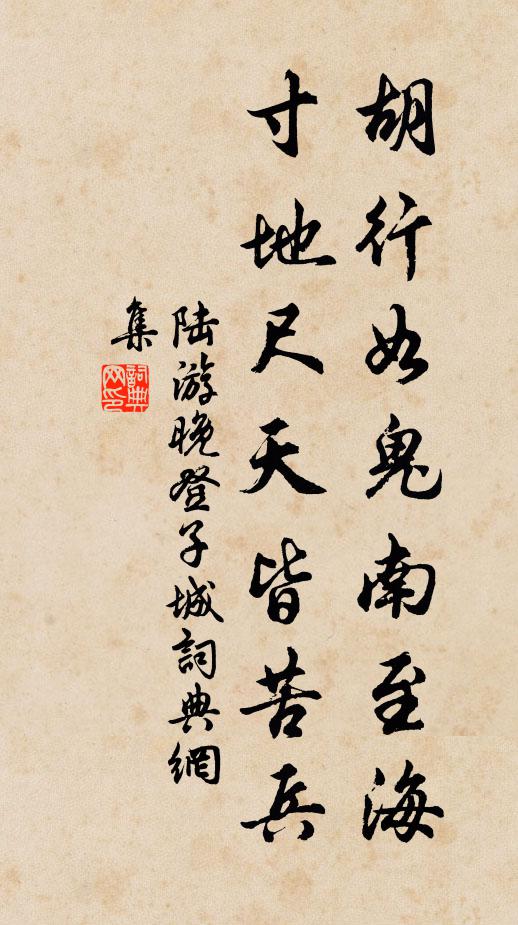 胡行如鬼南至海
寸地尺天皆苦兵
陆游晚登子城詞典網
集
詞典网印